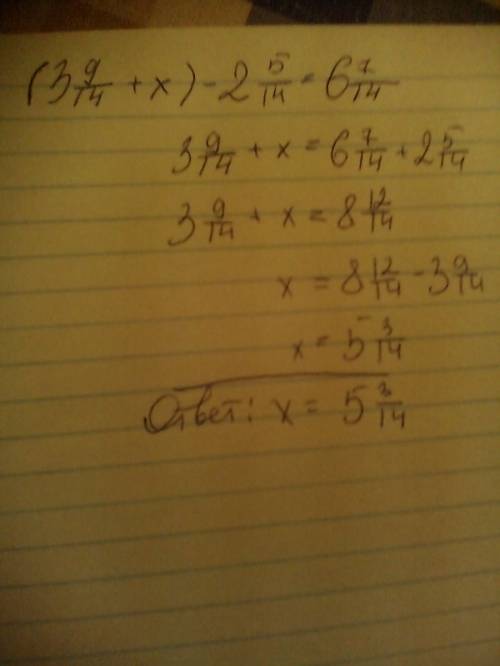 (3 9/14 + x) - 2 5/14 = 6 7/14
3 9/14 + x = 6 7/14 + 2 5/14
3 9/14 + x = 8 12/14
x = 8 12/14 - 3 9/14
x = 5 3/14
Ответ: x = 5 3/14